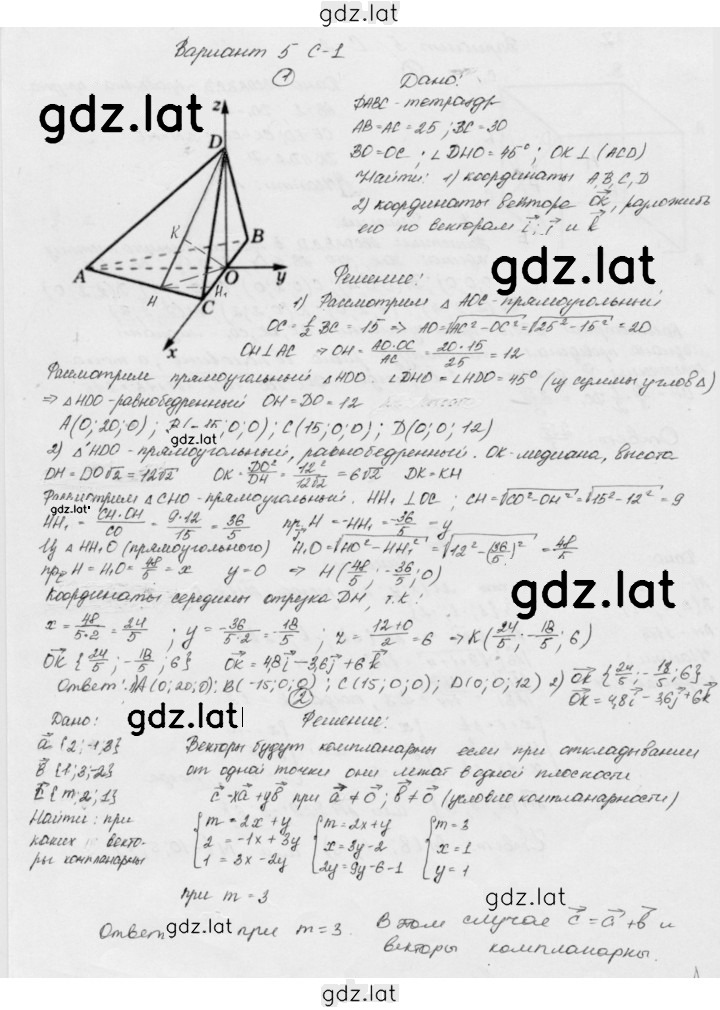 gdz.lat
Вариант 5 С-1
①
gdz.lat
Дано:
DABC - тетраэдр
AB=AC=25; BC=30
BO=OC; ∠DHO=45°; OK⊥(ACD)
Найти: 1) координаты A, B, C, D
2) координаты вектора OK⃗, разложить
его по векторам i⃗; j⃗ и k⃗
z
D
K
B
A
O
y
H
H₁
C
x
Решение:
1) Рассмотрим △AOC - прямоугольный,
OC=1/2 BC=15 => AO=√AC²-OC²=√25²-15²=20
OH⊥AC => OH=AO·OC/AC=20·15/25=12
gdz.lat
Рассмотрим прямоугольный △HDO. ∠DHO=∠HDO=45° (из суммы углов △)
=> △HDO-равнобедренный OH=DO=12
A(0;20;0); B(-15;0;0); C(15;0;0); D(0;0;12)
gdz.lat
2) △HDO-прямоугольный, равнобедренный. OK-медиана, высота
DH=DO√2=12√2 OK=DO²/DH=12²/12√2=6√2 DK=KH
Рассмотрим △CHO-прямоугольный. HH₁⊥OC; CH=√CO²-OH²=√15²-12²=9
gdz.lat
HH₁=CH·OH/CO=9·12/15=36/5 H=-HH₁=-36/5=y
Из △HH₁O (прямоугольного) H₁O=√HO²-HH₁²=√12²-(36/5)²=48/5
H=H₁O=48/5=x y=0 => H(48/5;-36/5;0)
gdz.lat
Координаты середины отрезка DH, т.K:
x=48/5·2=24/5; y=-36/5·2=-18/5; z=12+0/2=6 => K(24/5;-18/5;6)
OK⃗{24/5;-18/5;6} OK⃗=4,8i⃗-3,6j⃗+6k⃗
Ответ: 1) A(0;20;0); B(-15;0;0); C(15;0;0); D(0;0;12) 2) OK⃗{24/5;-18/5;6}
OK⃗=4,8i⃗-3,6j⃗+6k⃗
②
gdz.lat
Дано:
a⃗{2;-1;3}
b⃗{1;3;-2}
c⃗{m;2;1}
Найти: при
каких векто-
ры компланарны
Решение:
Векторы будут компланарны если при откладывании
от одной точки они лежат в одной плоскости
c⃗=xa⃗+yb⃗ при a⃗≠0; b⃗≠0 (условие компланарности)
{m=2x+y {m=2x+y {m=3
{2=-1x+3y {x=3y-2 {x=1
{1=3x-2y {2y=9y-6-1 {y=1
при m=3
gdz.lat
Ответ при m=3. В этом случае c⃗=a⃗+b⃗ и
векторы компланарны.
gdz.lat
gdz.lat